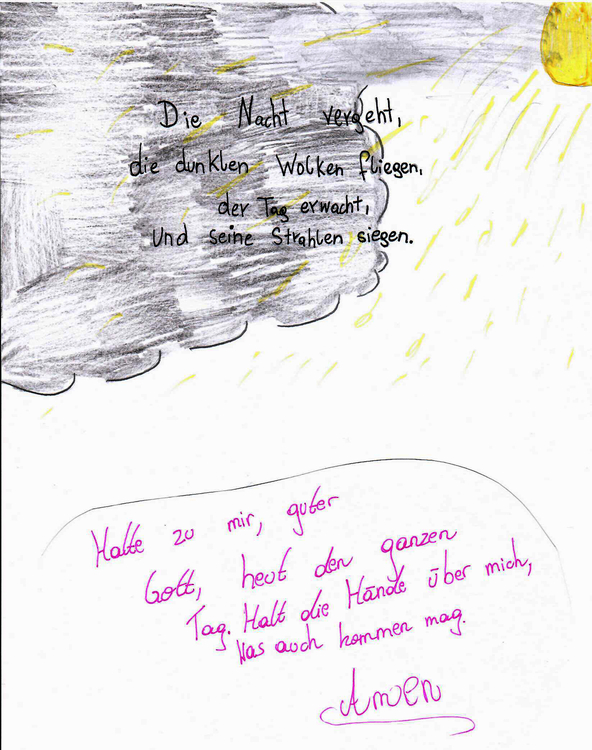 Die Nacht vergeht,
die dunklen Wolken fliegen,
der Tag erwacht,
Und seine Strahlen siegen.
Halte zu mir, guter
Gott, heut den ganzen
Tag. Halt die Hände über mich,
Was auch kommen mag.
Amen